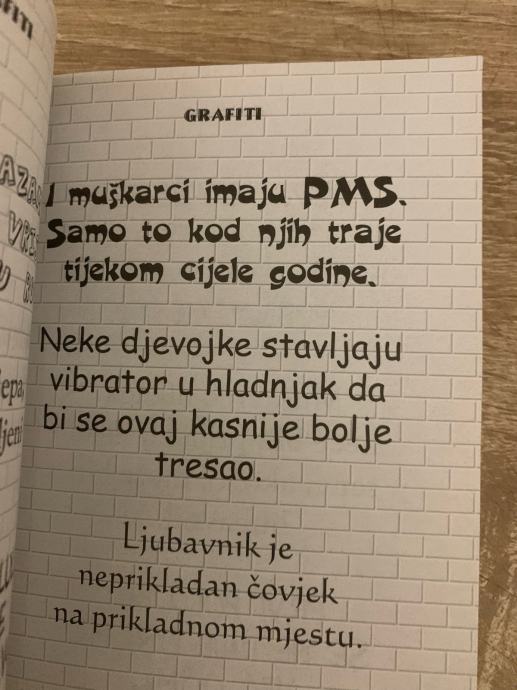 GRAFITI
I muškarci imaju PMS.
Samo to kod njih traje
tijekom cijele godine.
Neke djevojke stavljaju
vibrator u hladnjak da
bi se ovaj kasnije bolje
tresao.
Ljubavnik je
neprikladan čovjek
na prikladnom mjestu.